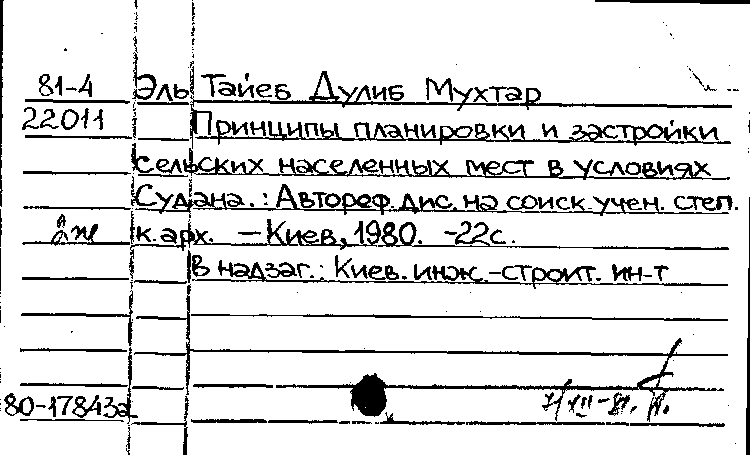 81-4 Эль Тайеб Дулиб Мухтар
22011 Принципы планировки и застройки
сельских населенных мест в условиях
Судана.: Автореф. дис. на соиск. учен. степ.
к. арх. — Киев, 1980. -22с.
В надзаг.: Киев. инж.-строит. ин-т
80-17843а